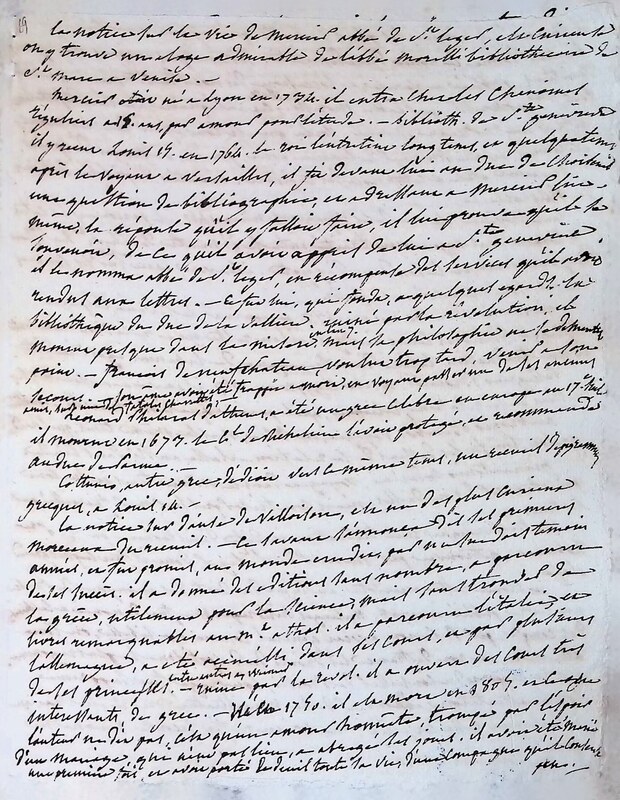 19
la notice sur la vie de mercier abbé de St leger, est curieuse
on y trouve un eloge admirable de l'abbé morelli bibliothecaire de
St marc a Venise. —
mercier était né a Lyon en 1734. il entra chez les Chanoines
réguliers a 15 ans, par amour pour l'etude. — biblioth. de Ste genevieve
il y reçut Louis 15. en 1764. le roi l'entretint long tems, et quelque tems
après le voyant a Versailles, il fit devant lui au duc de Choiseul
une question de bibliographie, et adressant a mercier lui-
même, la réponse qu'il y falloit faire, il lui prouva qu'il se
souvenoit, de ce qu'il avoit appris de lui a Ste genevieve
il le nomma abbé de St leger, en récompense des services qu'il avoit
rendus aux lettres. — Ce fut lui, qui fonda, a quelques egards la
bibliothèque du duc de la valliere. ruiné par la révolution, il
mourut presque dans la misere, mais sa philosophie ne se dementit
point. — francois de neufchateau, voulut trop tard, venir a son
secours. frappé a mort, en voyant passer un de ses anciens
amis,
Leonard Philaras d'athenes, a été un grec celebre en europe au 17. siecle
il mourut en 1673. le Cal de Richelieu l'avoit protegé, et recommandé
au duc de Parme. —
Cottunius, autre grec, dedioit vers le même tems, un recueil d'epigrammes
grecques, a Louis 14. —
La notice sur Danse de Villoison, est un des plus curieux
morceaux du recueil. — Ce savant s'annonça dès ses premieres
années, et fut promis, au monde erudit, par
de ses succès. il a donné des editions sans nombre, a parcouru
la grèce, utilement pour la science, mais sans trouver de
livres remarquables au mt athos. il a parcouru l'italie, et
l'allemagne, a été accueilli dans ses cours, et par plusieurs
de ses princesses. — ruiné par la révol. il a ouvert des cours très
interessants, de grec. — 1750. il est mort en 1805. et ce que
l'auteur ne dit pas, c'est qu'un amour honnête, trompé par l'espoir
d'un mariage, qui n'eut pas lieu, a abregé ses jours. il avoit été marié
une premiere fois, et avoit porté le deuil toute sa vie, d'une compagne